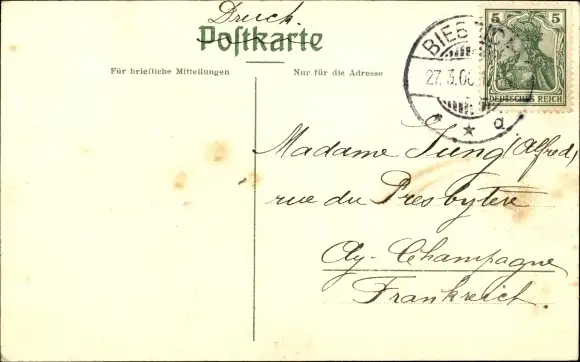 Druck.
Postkarte
Für briefliche Mitteilungen
Nur für die Adresse
5 5
DEUTSCHES REICH
BIEB
27.3.06
* a
Madame Jung (Alfred)
rue du Presbytère
Ay-Champagne
Frankreich.